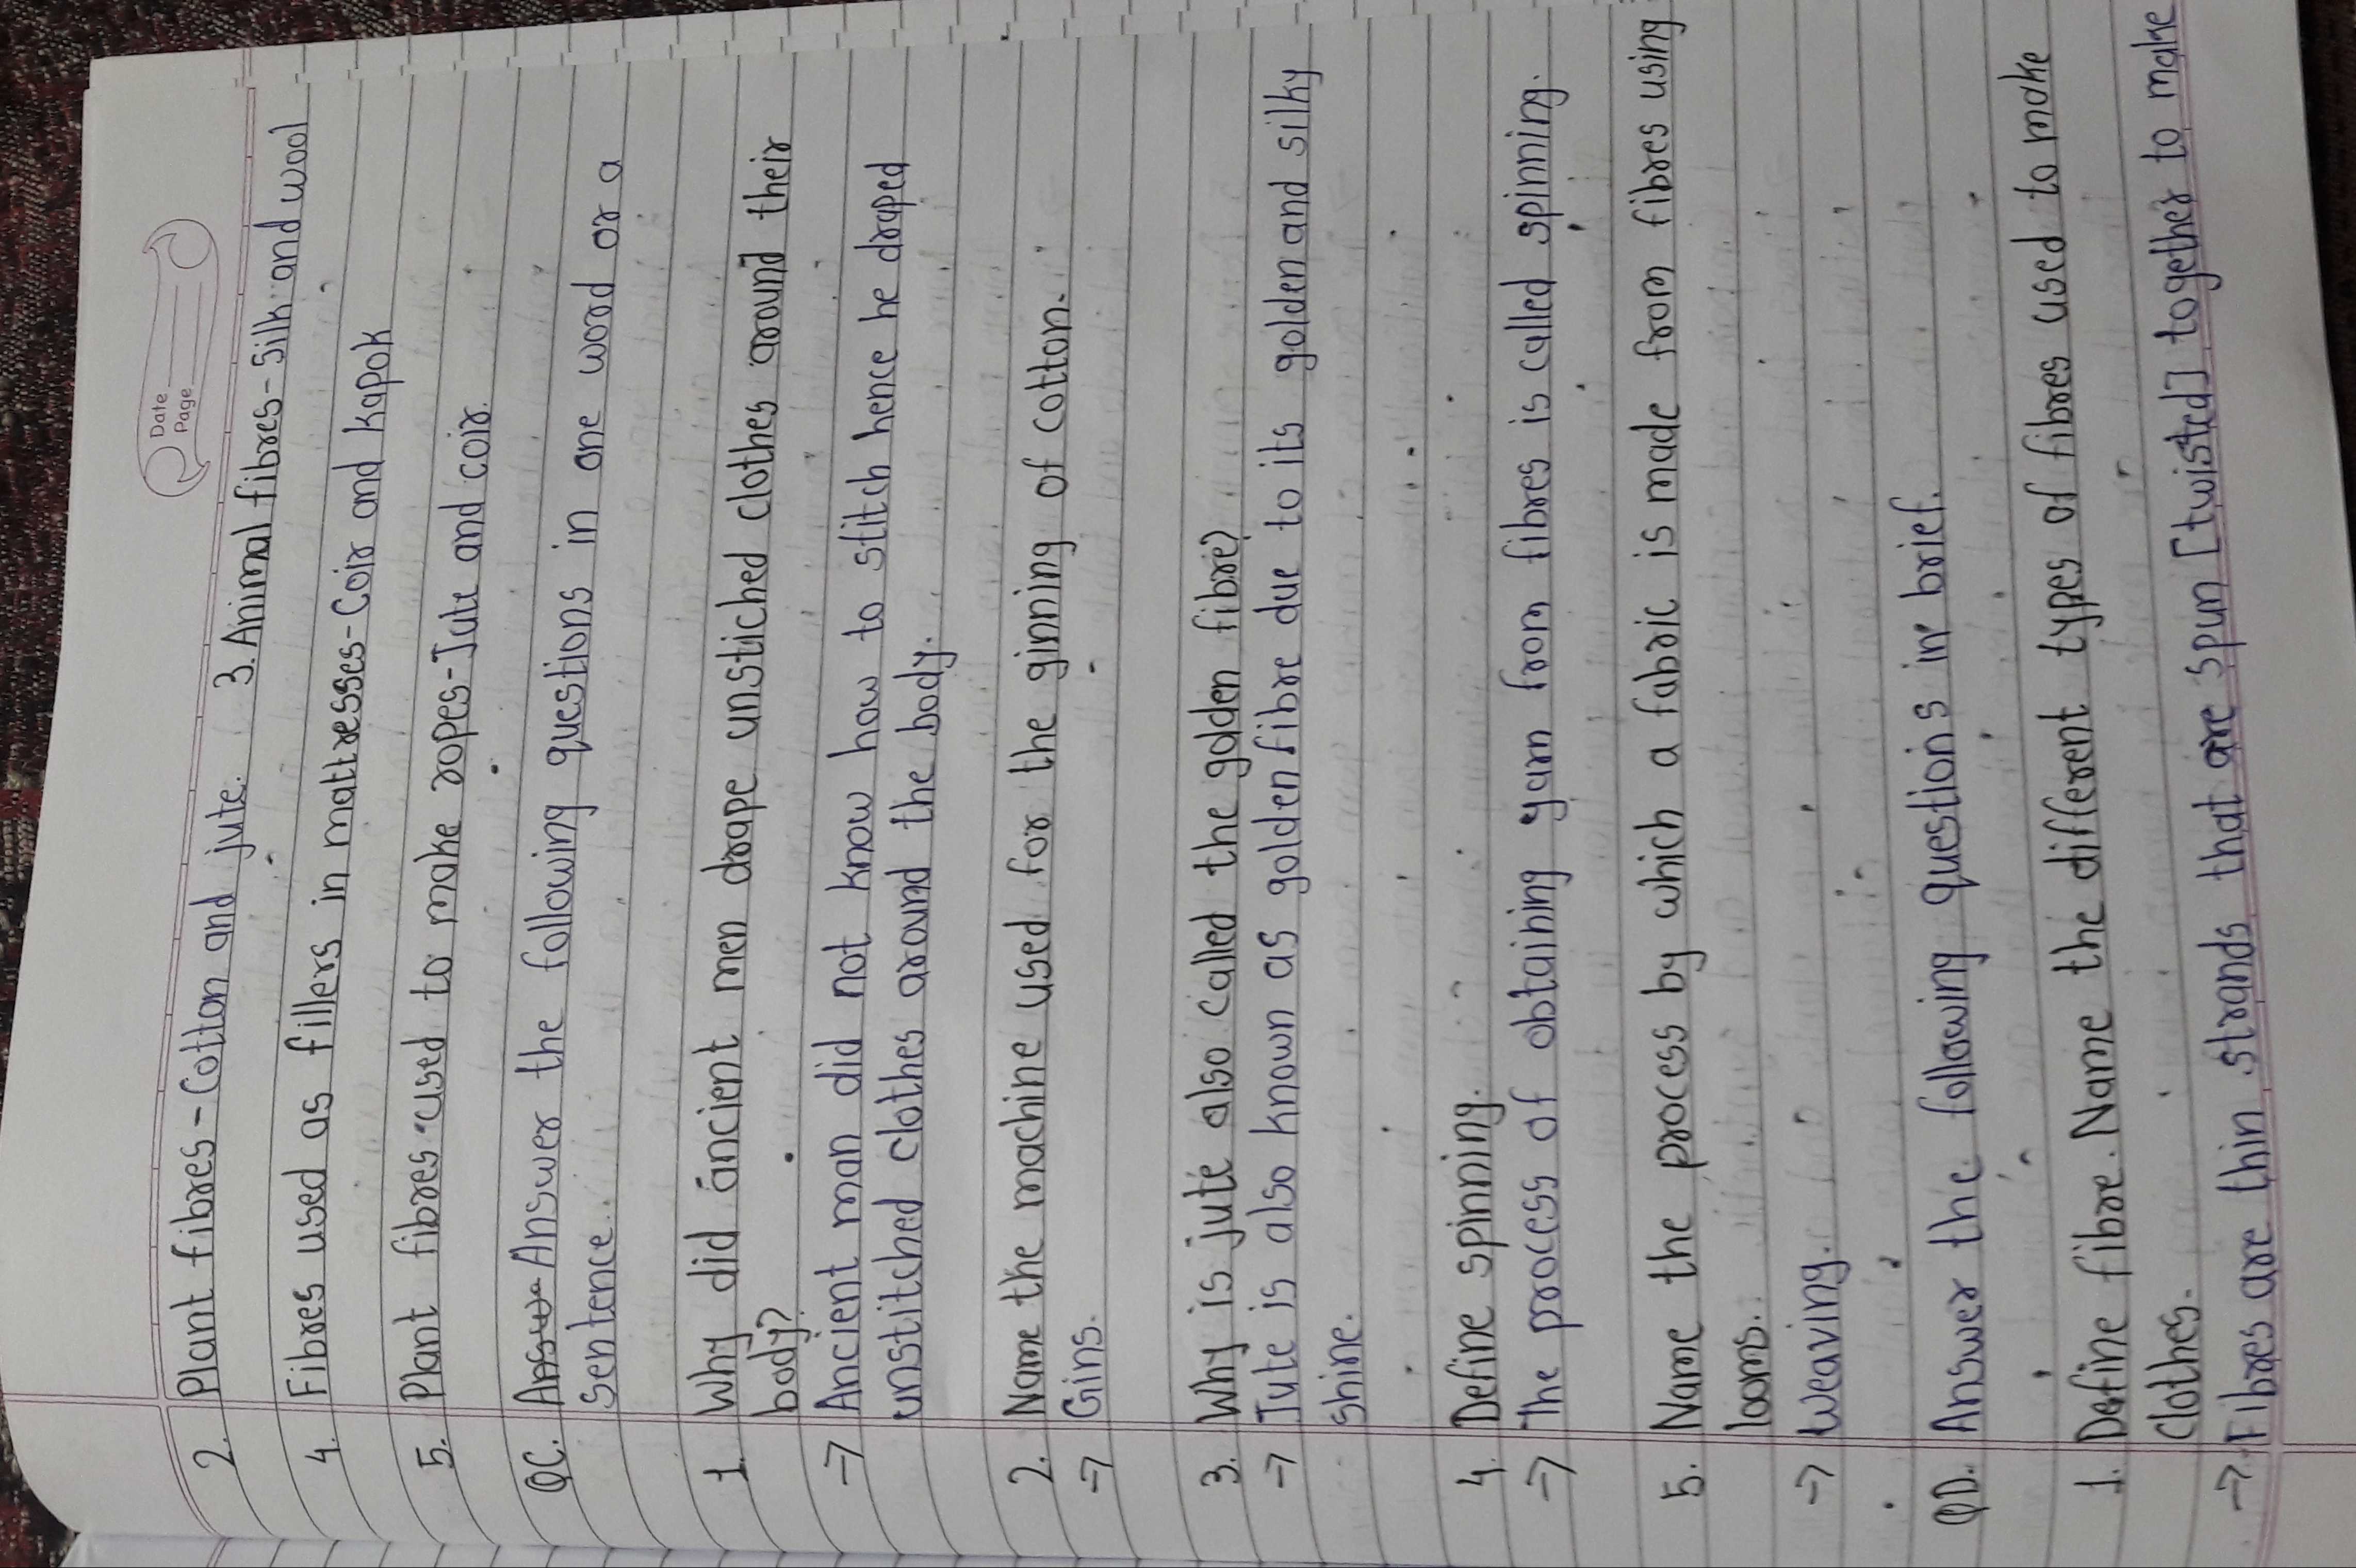 Date
Page
2. Plant fibres - Cotton and jute. 3. Animal fibres - Silk and wool
4. Fibres used as fillers in mattresses - Coir and kapok
5. Plant fibres used to make ropes - Jute and coir.
QC. Answe Answer the following questions in one word or a
sentence.
1. Why did ancient men drape unstiched clothes around their
body?
→ Ancient man did not know how to stitch hence he draped
unstitched clothes around the body.
2. Name the machine used for the ginning of cotton.
→ Gins.
3. Why is jute also called the golden fibre?
→ Jute is also known as golden fibre due to its golden and silky
shine.
4. Define spinning.
→ The process of obtaining yarn from fibres is called spinning.
5. Name the process by which a fabric is made from fibres using
looms.
→ Weaving.
QD. Answer the following questions in brief.
1. Define fibre. Name the different types of fibres used to make
clothes.
→ Fibres are thin strands that are spun [twisted] together to make